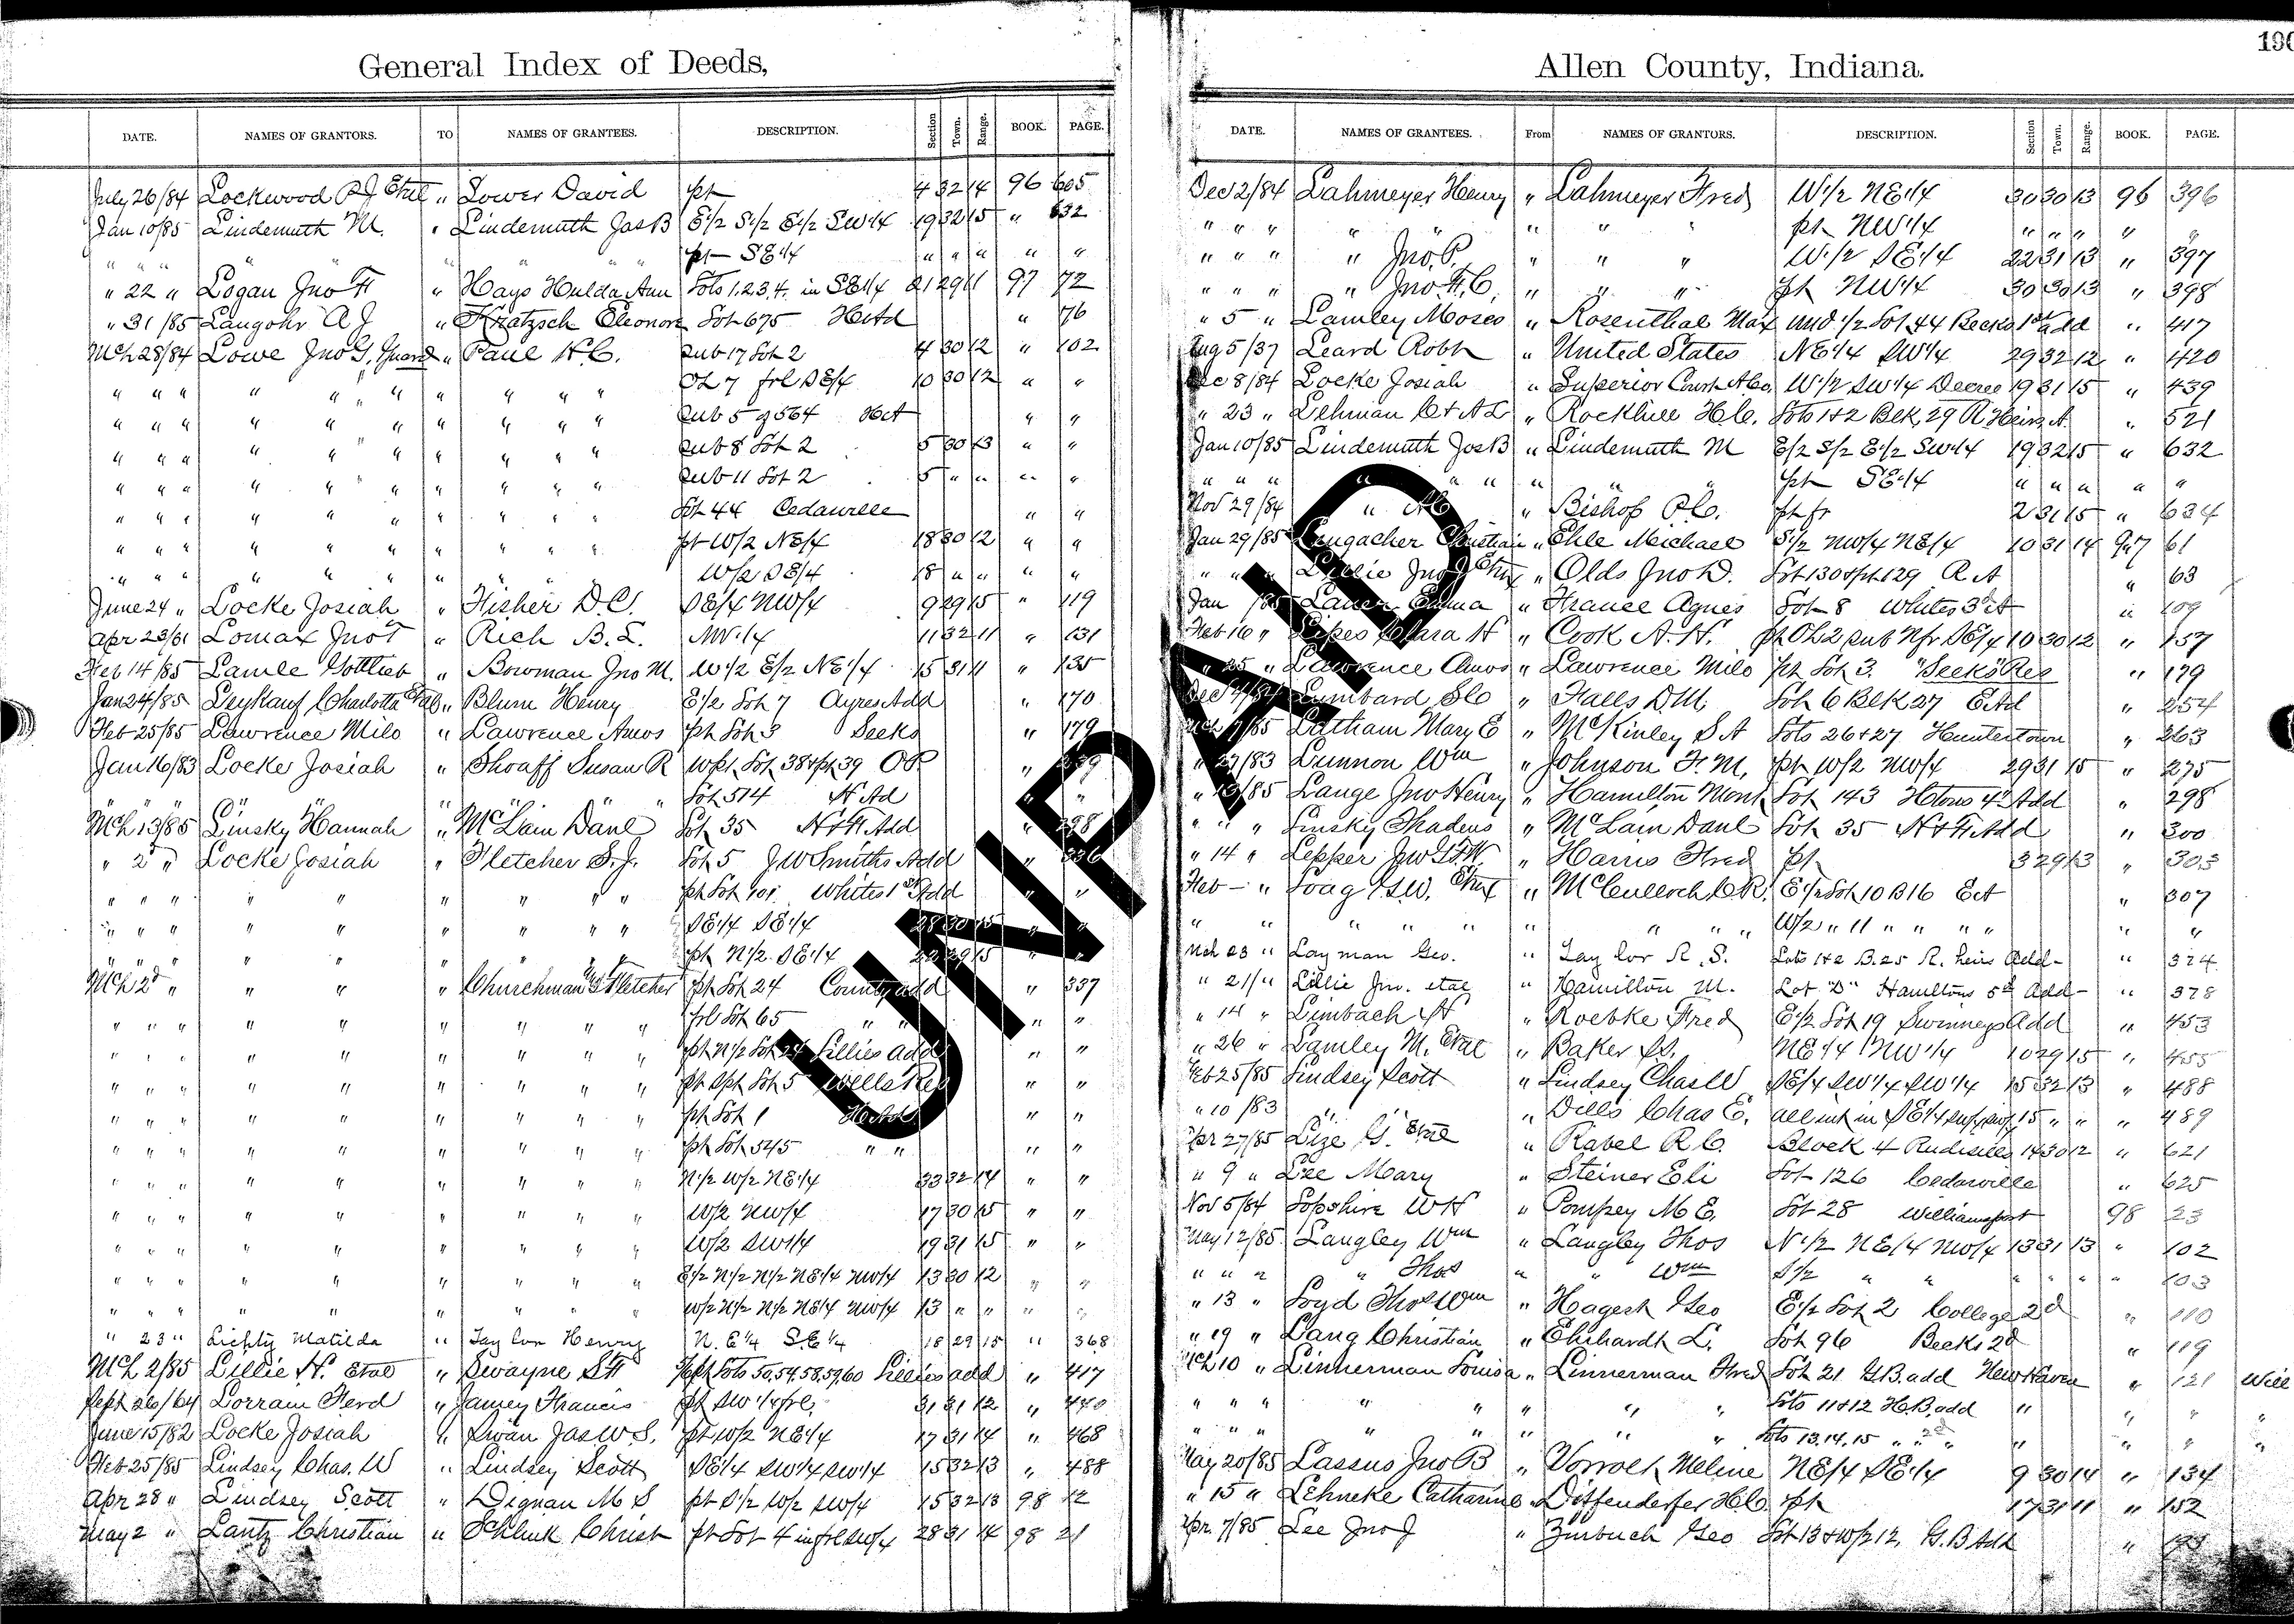 190
General Index of Deeds,
DATE. NAMES OF GRANTORS. TO NAMES OF GRANTEES. DESCRIPTION. Section Town. Range. BOOK. PAGE.
July 26/84 Lockwood R J Etal " Lower David pt 4 32 14 96 605
Jan 10/85 Lindemuth M. " Lindemuth Jas B E1/2 S1/2 E1/2 SW1/4 19 32 15 " 632
" " " " " pt SE1/4 " " " " "
" 22 " Logan Jno H " Hays Hulda Ann Lots 1.2.3.4. in SE1/4 21 29 11 97 72
" 31/85 Langohr A J " Kratzsch Eleonore Lot 675 H Ad " 76
Mch 28/84 Lowe Jno G, Guard " Paul H.C. Sub 17 Lot 2 4 30 12 " 102
" " " " " " " " " " OL 7 frl SE/4 10 30 12 " "
" " " " " " " " " " Sub 5 of 564 H A " "
" " " " " " " " " " Sub 8 Lot 2 5 30 13 " "
" " " " " " " " " " Sub 11 Lot 2 5 " " " "
" " " " " " " " " " Lot 44 Cedarville " "
" " " " " " " " " " pt W/2 NE/4 18 30 12 " "
" " " " " " " " " " W/2 SE/4 18 " " " "
June 24 " Locke Josiah " Fisher D.C. SE/4 NW/4 9 29 15 " 119
Apr 23/61 Lomax Jno T " Rich B. L. NW1/4 11 32 11 " 131
Feb 14/85 Lamle Gottlieb " Bowman Jno M. W1/2 E/2 NE1/4 15 31 11 " 135
Jan 24/85 Leykauf Charlotta Etal " Blum Henry E1/2 Lot 7 Ayres Add " 170
Feb 25/85 Lawrence Milo " Lawrence Amos pt Lot 3 Seeks " 179
Jan 16/83 Locke Josiah " Shoaff Susan R Wpt. Lot 38 & pt 39 O P " 239
" " " " " Lot 514 H Ad " "
Mch 13/85 Linsky Hannah " McLain Danl Lot 35 N & F Add " 298
" 2 " Locke Josiah " Fletcher S. J. Lot 5 J W Smiths Add " 336
" " " " " " " " pt Lot 101 Whites 1st Add " "
" " " " " " " " SE1/4 SE1/4 28 30 15 " "
" " " " " " " " pt N1/2 SE1/4 22 29 15 " "
Mch 2d " " " " Churchman & Fletcher pt Lot 24 County add " 337
" " " " " " " " " frl Lot 65 " " " "
" " " " " " " " " pt N1/2 Lot 24 Lillies add " "
" " " " " " " " " pt Spt Lot 5 Wells Res " "
" " " " " " " " " pt Lot 1 H Add " "
" " " " " " " " " pt Lot 545 " " " "
" " " " " " " " " N1/2 W/2 NE1/4 33 32 14 " "
" " " " " " " " " W/2 NW/4 17 30 15 " "
" " " " " " " " " W/2 SW1/4 19 31 15 " "
" " " " " " " " " E1/2 N1/2 N1/2 NE1/4 NW/4 13 30 12 " "
" " " " " " " " " W/2 N1/2 N1/2 NE1/4 NW/4 13 " " " "
" 23 " Lichty Matilda " Taylor Henry N. E1/4 S.E1/4 18 29 15 " 368
Mch 2/85 Lillie H. Etal " Swayne S H pt Lots 50,54,58,59,60 Lillies add " 417
Sept 26/64 Lorram Ferd " Jamey Francis pt SW1/4 frl, 31 31 12 " 440
June 15/82 Locke Josiah " Swan Jas W S. pt W/2 NE1/4 17 31 14 " 468
Feb 25/85 Lindsey Chas. W " Lindsey Scott SE1/4 SW1/4 SW1/4 15 32 13 " 488
Apr 28 " Lindsey Scott " Dignan M S pt S1/2 W/2 SW/4 15 32 13 98 12
May 2 " Lantz Christian " Schlink Christ pt Lot 4 in frl SW/4 28 31 14 98 21
Allen County, Indiana.
DATE. NAMES OF GRANTEES. From NAMES OF GRANTORS. DESCRIPTION. Section Town. Range. BOOK. PAGE.
Dec 2/84 Lahmeyer Henry " Lahmeyer Fred W1/2 NE1/4 30 30 13 96 396
" " " " " " " " pt NW1/4 " " " " "
" " " " Jno. P. " " " W.1/2 SE1/4 22 31 13 " 397
" " " " Jno. F. C. " " " pt NW1/4 30 30 13 " 398
" 5 " Lamley Moses " Rosenthal Max und 1/2 Lot 44 Beeks 1st add " 417
Aug 5/37 Leard Robt " United States NE1/4 SW1/4 29 32 12 " 420
Dec 8/84 Locke Josiah " Superior Court A Co. W1/2 SW1/4 Decree 19 31 15 " 439
" 23 " Lehman C & A L " Rockhill H C. Lots 1 & 2 Blk, 29 R Heirs A. " 521
Jan 10/85 Lindemuth Jos B " Lindemuth M E/2 S/2 E1/2 SW1/4 19 32 15 " 632
" " " " " " " " pt SE1/4 " " " " "
Nov 29/84 " " Bishop P. C. pt fr 2 31 15 " 634
Jan 29/85 Lengacher Christian " Ehle Michael S1/2 NW/4 NE/4 10 31 14 97 61
" " " Lillie Jno J Etux " Olds Jno D. Lot 130 & pt 129 R A " 63
Jan /85 Lauer Emma " France Agnes Lot 8 Whites 3d A " 109
Feb 16 " Lipes Clara H " Cook A. H. pt OL 2 Sub Nfr SE/4 10 30 12 " 157
" 25 " Lawrence Amos " Lawrence Milo pt Lot 3. "Seeks" Res " 179
Dec 4/84 Lumbard S C " Falls D M. Lot 6 Blk 27 E Ad " 254
Mch 7/85 Latham Mary E " McKinley S A Lots 26 & 27 Huntertown " 263
" 27/83 Lunnon Wm " Johnson F. M. pt W/2 NW/4 29 31 15 " 275
" 13/85 Lange Jno Henry " Hamilton Mont Lot 143 Htons 4th Add " 298
" " " Linsky Thadeus " McLain Danl Lot 35 N & F Add " 300
" 14 " Lepper Jno G F W. " Harris Fred pt 3 29 13 " 303
Feb — " Loag G. W. Etux " McCulloch C R. E1/2 Lot 10 B 16 E A " 307
" " " " " " " " " " W/2 " 11 " " " " " "
Mch 23 " Layman Geo. " Taylor R. S. Lots 1 & 2 B. 25 R. heirs Add - " 324
" 21/" Lillie Jno. etal " Hamilton M. Lot "D" Hamiltons 5th Add - " 378
" 14 " Limbach H " Roebke Fred E1/2 Lot 19 Swinneys Add " 453
" 26 " Lamley M. Etal " Baker Js. NE1/4 NW1/4 10 29 15 " 455
Feb 25/85 Lindsey Scott " Lindsey Chas W SE/4 SW1/4 SW1/4 15 32 13 " 488
" 10/83 " " " Dills Chas E. all int in SE1/4 15 " " " 489
Apr 27/85 Lize G. Etal " Rabel R C. Block 4 Rudisills 14 30 12 " 621
" 9 " Lee Mary " Steiner Eli Lot 126 Cedarville " 625
Nov 5/84 Lopshire W H " Pompey M E. Lot 28 Williamsport 98 23
May 12/85 Langley Wm " Langley Thos N1/2 NE/4 NW/4 13 31 13 " 102
" " " " Thos " " Wm S1/2 " " " " " " 103
" 13 " Loyd Thos Wm " Hagest Geo E1/2 Lot 2 College 2d " 110
" 19 " Lang Christian " Ehrhardt L. Lot 96 Beeks 2d " 119
Mch 10 " Linnerman Louisa " Linnerman Fred Lot 21 G B. add New Haven " 121 Will
" " " " " " " " Lots 11 & 12 H. B. add " " " "
" " " " " " " " Lots 13.14.15 " 2d " " " " "
May 20/85 Lassus Jno B " Vorrolt Meline NE/4 SE1/4 9 30 14 " 134
" 15 " Lehneke Catharine " Diffenderfer H C. pt 17 31 11 " 152
Apr. 7/85 Lee Jno J " Zurbuch Geo Lot 13 & W/2 12, G. B Add "
UNPAID